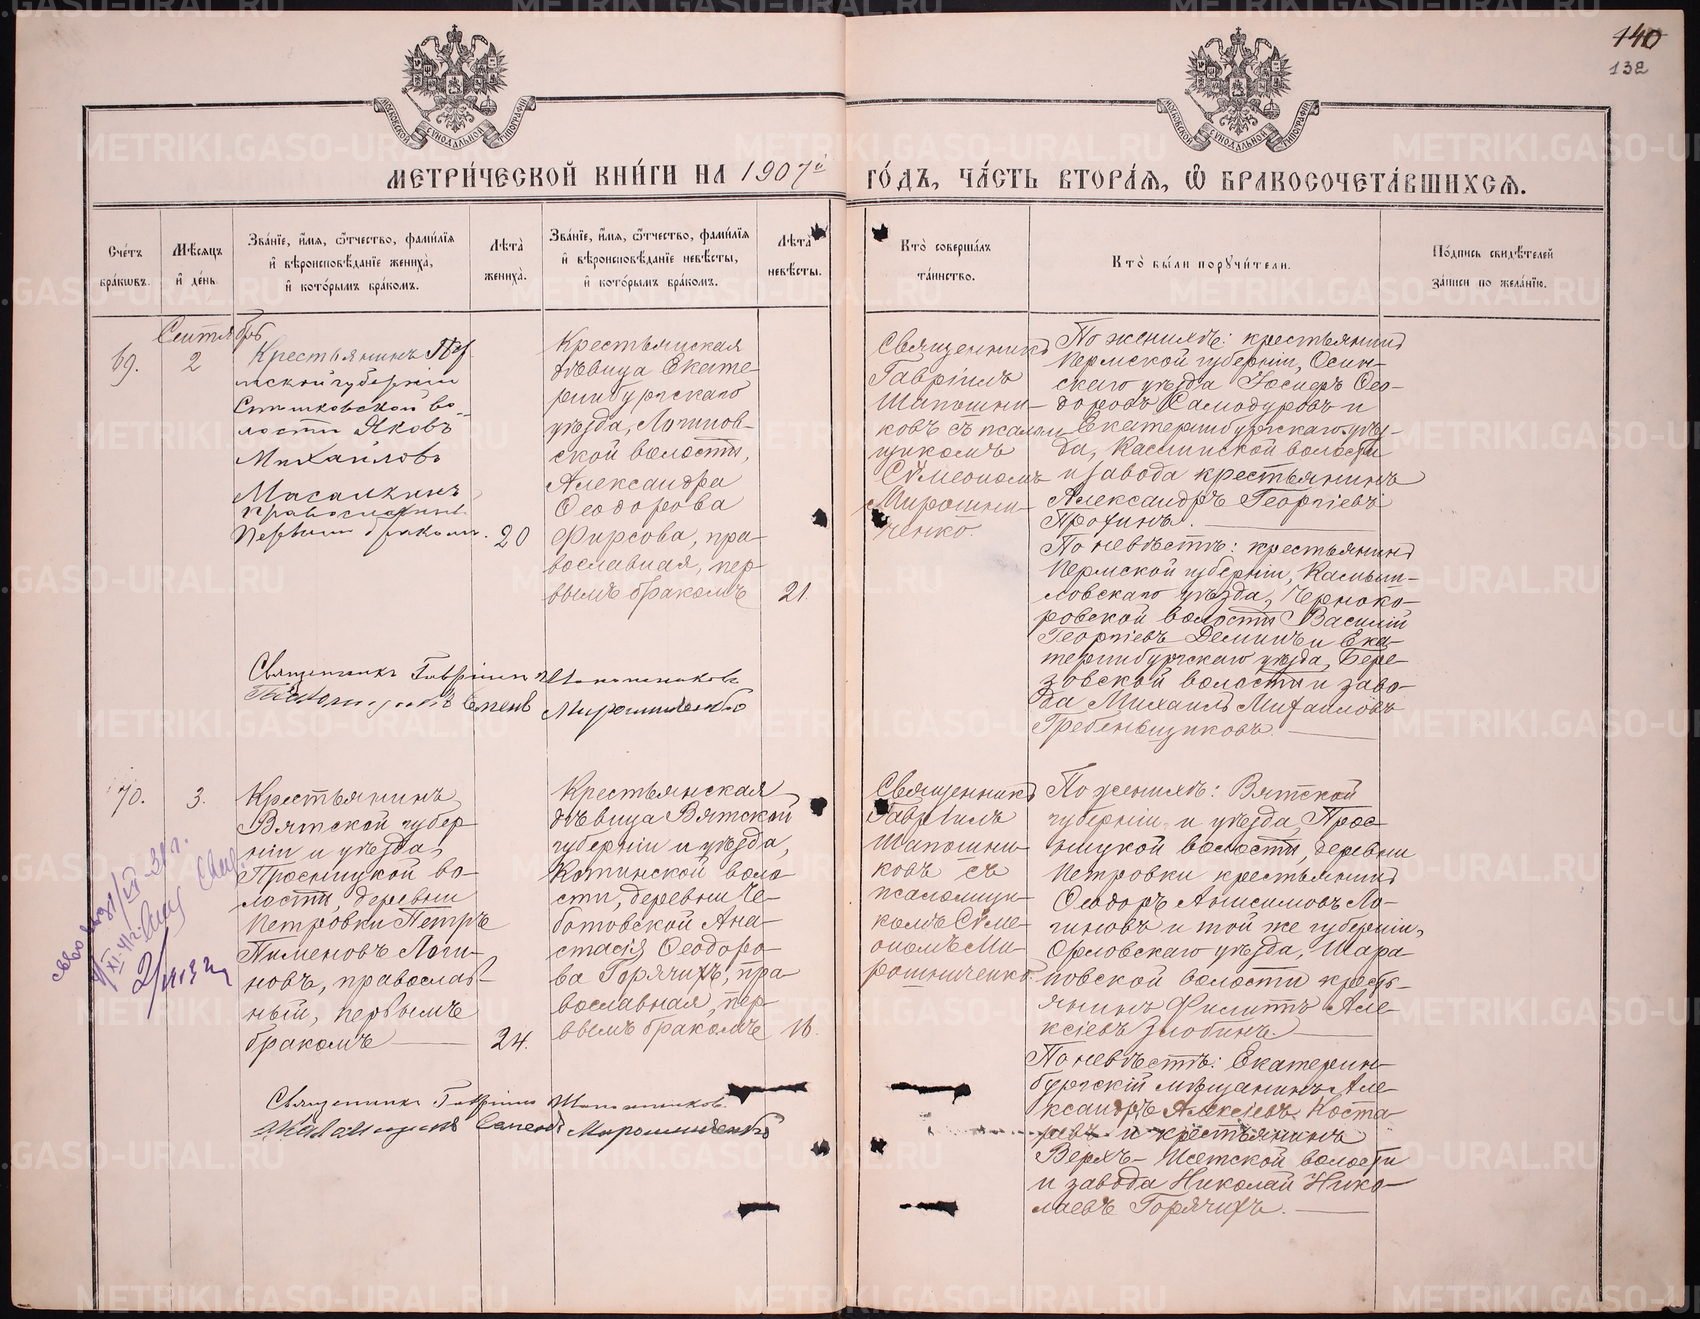 140
132
МОСКОВСКОЙ СѴНОДАЛЬНОЙ ТИПОГРАФІИ
МОСКОВСКОЙ СѴНОДАЛЬНОЙ ТИПОГРАФІИ
МЕТРИ́ЧЕСКОЙ КНИ́ГИ НА 1907й ГО́ДЪ, ЧА́СТЬ ВТОРА́Я, Ѡ БРАКОСОЧЕТА́ВШИХСЯ.
Сче́тъ бра́кωвъ.
Мѣ́сяцъ и҆ де́нь.
Зва́нїе, и҆́мя, ѻ҆́тчество, фами́лїя и҆ вѣроисповѣ́данїе жениха̀, и҆ кото́рымъ бра́комъ.
Лѣта̀ жениха̀.
Зва́нїе, и҆́мя, ѻ҆́тчество, фами́лїя и҆ вѣроисповѣ́данїе невѣ́сты, и҆ кото́рымъ бра́комъ.
Лѣта̀ невѣ́сты.
Кто̀ соверша́лъ та́инство.
Кто̀ бы́ли порꙋчи́тели.
По́дпись свидѣ́телей за́писи по жела́нїю.
Сентябрь
69.
2
Крестьянинъ Пер
мской губерніи
волости Яковъ
Михайловъ
Масалкинъ
православный
первымъ бракомъ.
20
Крестьянская
дѣвица Екате-
ринбургскаго
уѣзда, Логинов-
ской волости,
Александра
Ѳеодорова
Фирсова, пра-
вославная, пер-
вымъ бракомъ
21.
Священникъ
Гавріилъ
Шапошни-
ковъ съ псалом
щикомъ
Сѵмеономъ
Мирошни-
ченко.
По женихѣ: крестьянинъ
Пермской губерніи, Осин-
скаго уѣзда Іосифъ Ѳео-
доровъ Самодуровъ и
Екатеринбургскаго уѣз-
да, Каслинской волости
и завода крестьянинъ
Александръ Георгіевъ
Пронинъ.
По невѣстѣ: крестьянинъ
Пермской губерніи, Камыш-
ловскаго уѣзда, Черноко-
ровской волости Василій
Георгіевъ Деминъ и Ека-
теринбургскаго уѣзда, Бере-
зовской волости и заво-
да Михаилъ Михаиловъ
Гребенщиковъ.
Священникъ Гавріилъ Шапошниковъ
Псаломщикъ Сѵмеонъ Мирошниченко
70.
3.
Крестьянинъ
Вятской губер-
ніи и уѣзда,
Просницкой во-
лости, деревни
Петровки Петръ
Пименовъ Логи-
новъ, православ-
ный, первымъ
бракомъ
24.
Крестьянская
дѣвица Вятской
губерніи и уѣзда,
Кстинской воло-
сти, деревни Че-
ботовской Ана-
стасія Ѳеодоро-
ва Горячихъ, пра-
вославная, пер-
вымъ бракомъ
16.
Священникъ
Гавріилъ
Шапошни-
ковъ съ
псаломщи-
комъ Сѵме-
ономъ Ми-
рошниченко
По женихѣ: Вятской
губерніи и уѣзда, Прос-
ницкой волости, деревни
Петровки крестьянинъ
Ѳеодоръ Анисимовъ Ло-
гиновъ и той же губерніи,
Орловскаго уѣзда, Шара-
новской волости кресть-
янинъ Филиппъ Але-
ксіевъ Злобинъ.
По невѣстѣ: Екатерин-
бургскій мѣщанинъ Але-
ксандръ Алексіевъ Коста-
ревъ и крестьянинъ
Верхъ-Исетской волости
и завода Николай Нико-
лаевъ Горячихъ.
Священникъ Гавріилъ Шапошниковъ
Псаломщикъ Семенъ Мирошниченко
METRIKI.GASO-URAL.RU